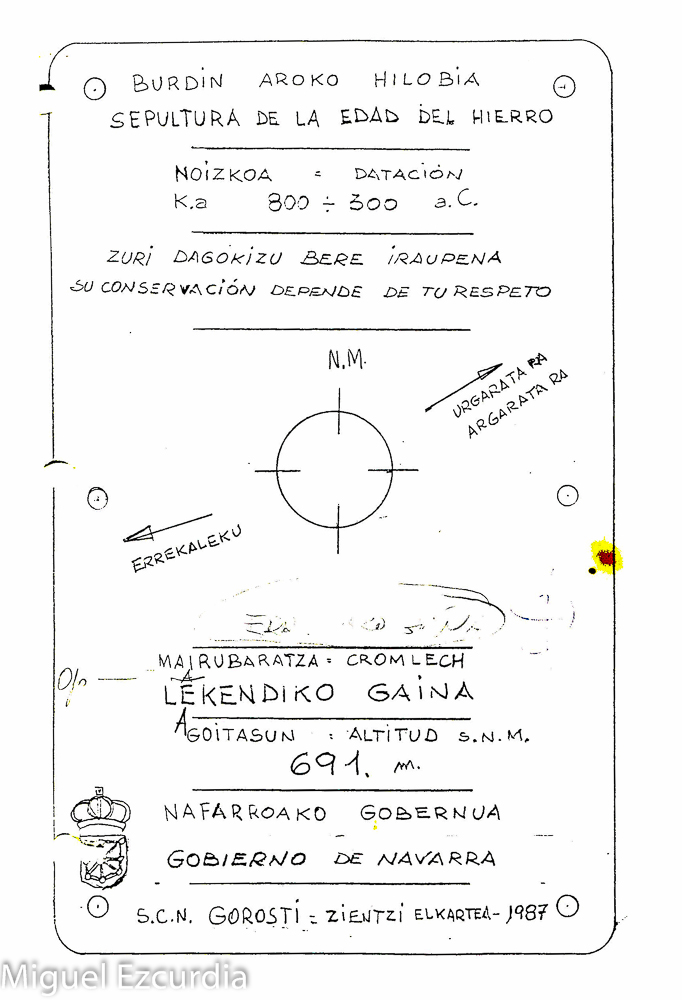 BURDIN AROKO HILOBIA
SEPULTURA DE LA EDAD DEL HIERRO
NOIZKOA = DATACIÓN
K.a 800 ÷ 300 a.C.
ZURI DAGOKIZU BERE IRAUPENA
SU CONSERVACIÓN DEPENDE DE TU RESPETO
N.M.
URGARATA RA
ARGARATA RA
ERREKALEKU
MAIRUBARATZA = CROMLECH
LEKENDIKO GAINA
AGOITASUN : ALTITUD S.N.M.
691. m.
NAFARROAKO GOBERNUA
GOBIERNO DE NAVARRA
S.C.N. GOROSTI = ZIENTZI ELKARTEA - 1987
Miguel Ezcurdia